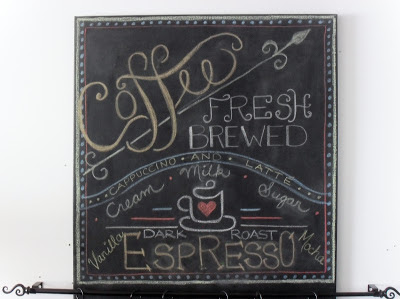 Coffee
FRESH
BREWED
CAPPUCCINO AND LATTE
Cream Milk Sugar
DARK ROAST
Vanilla ESPRESSO Mocha